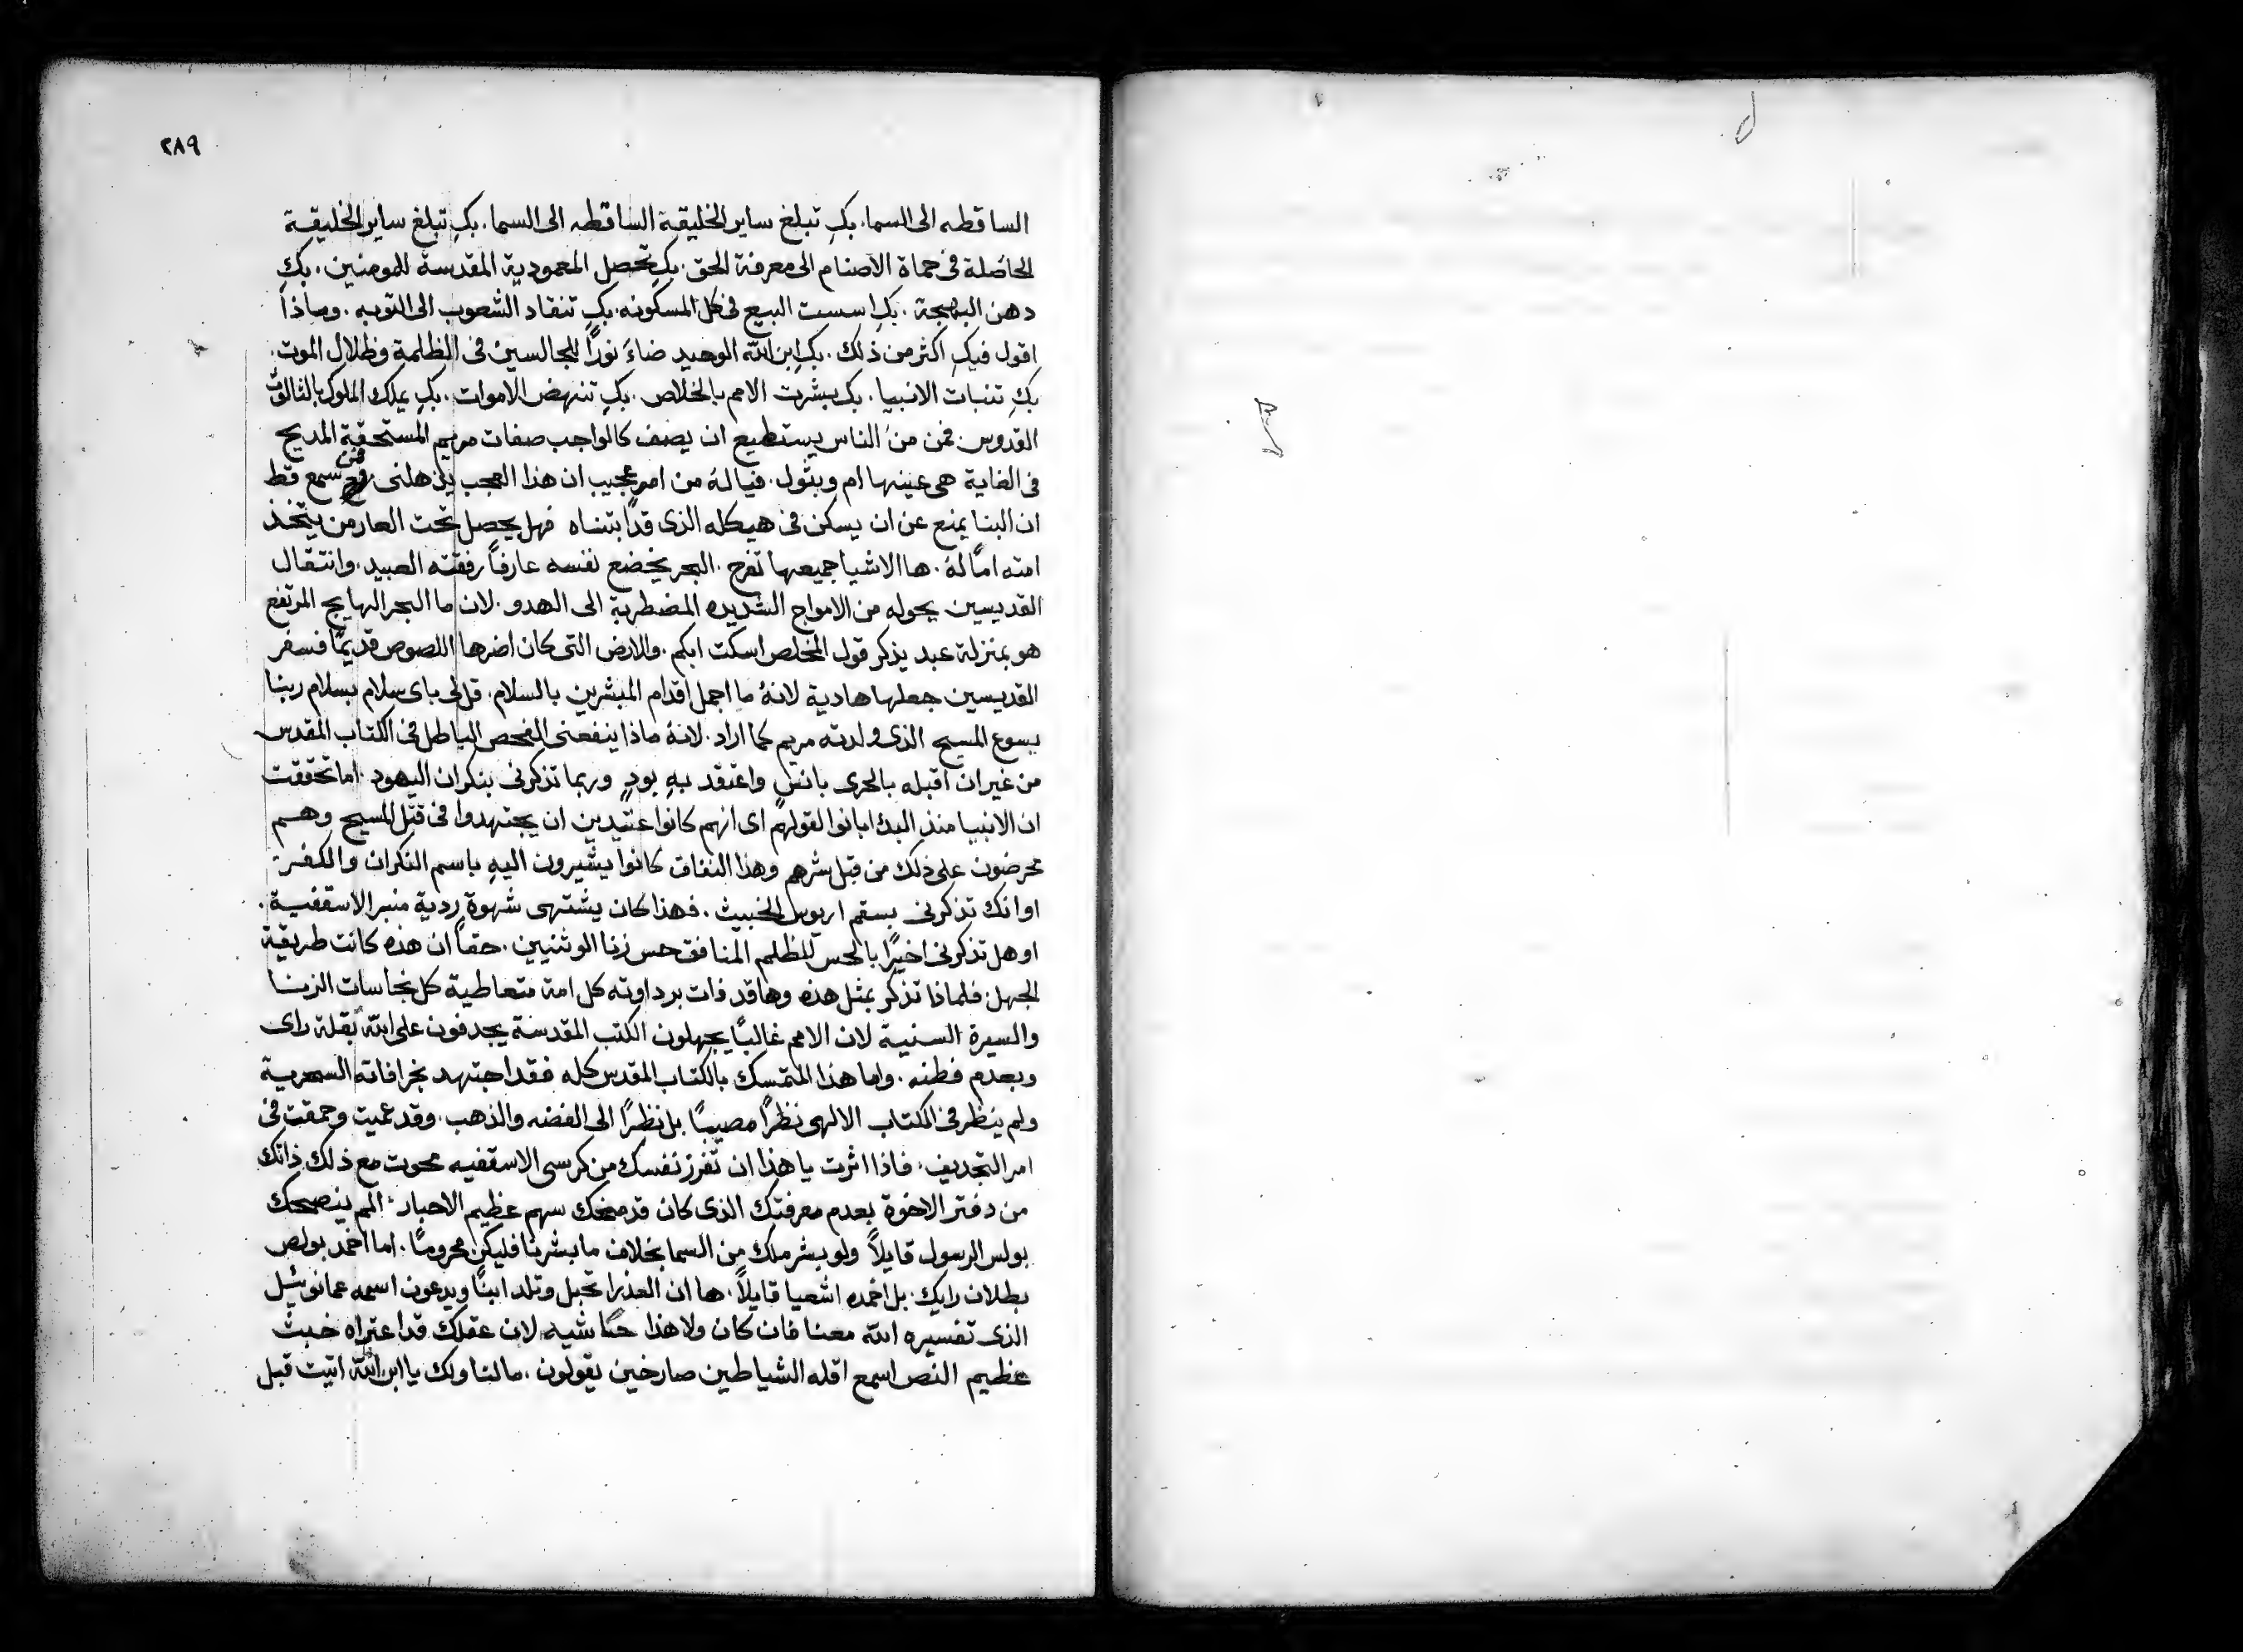 ٢٨٩
الساقطه الى السما. بكِ تبلغ ساير الخليقة الساقطه الى السما. بكِ تبلغ ساير الخليقة
الحاصلة فى حماة الاصنام الى معرفة الحق. بكِ تحصل المعمودية المقدسة للمومنين. بكِ
دهن البهجة. بكِ اسست البيع فى كل المسكونه. بكِ تنقاد الشعوب الى التوبه. وماذا
اقول فيكِ اكثر من ذلك. بكِ ابن الله الوحيد ضاءَ نورًا للجالسين فى الظلمة وظلال الموت.
بكِ تنبات الانبيا. بك بشرت الامم بالخلاص. بكِ تنهض الاموات. بكِ يملك الملوك بالثالوث
القدوس. فمن من الناس يستطيع ان يصف كالواجب صفات مريم المستحقة المديح
فى الغاية هى عينها ام وبتول. فياله من امرٍ عجيب ان هذا العجب يذهلنى فمن سمع قط
ان البنا يمنع عن ان يسكن فى هيكله الذى قد ابتناه فهل يحصل تحت العار من يتخذ
امته امًا لهُ. ها الاشيا جميعها تفرح. البحر يخضع نفسه عارفاً رفقته العبيد. وانتقال
القديسين يحوله من الامواج الشديده المضطربة الى الهدو. لان ما البحر الهايج المرتفع
هو بمنزلة عبد يذكر قول المخلص اسكت ابكم. والارض التى كان اضرها اللصوص قديمًا فسفر
القديسين جعلها هادية لانهُ ما اجمل اقدام المبشرين بالسلام. قل لى باى سلام بسلام ربنا
يسوع المسيح الذى ولدته مريم كما اراد. لانهُ ماذا ينفعنى الفحص الباطل فى الكتاب المقدس
من غير ان اقبله بالحرى بانسٍ واعتقد بهِ بودٍ وربما تذكرنى بنكران اليهود. اما تحققت
ان الانبيا منذ البدء ابانوا لقولهم اى انهم كانوا عتيدين ان يجتهدوا فى قتل المسيح وهم
محرضون على ذلك من قبل شرهم وهذا النفاق كانوا يشيرون اليهِ باسم النكران والكفر.
او انك تذكرنى بسقم اريوس الخبيث. فهذا كان يشتهى شهوة ردية منبر الاسقفية.
او هل تذكرنى اخيرًا بالحس المظلم المنافق حس زنا الوثنيين. حقاً ان هذه كانت طريقة
الجهل. فلماذا تذكر بمثل هذه وها قد فات برداوته كل امة متعاطية كل نجاسات الزنا
والسيرة السنية لان الامم غالبًا يجهلون الكتب المقدسة يجدفون على الله بقلة راى
وبعدم فطنه. واما هذا المتمسك بالكتاب المقدس كله فقد اجتهد بخرافاته السحرية
ولم ينظر فى الكتاب الالهى نظرًا مصيبًا بل نظرًا الى الفضه والذهب. وقد عميت وحمقت فى
امر التجديف. فاذا اثرت يا هذا ان تفرز نفسك من كرسى الاسقفيه محوت مع ذلك ذاتك
من دفتر الاخوة بعدم معرفتك الذى كان قد منحك سهم عظيم الاحبار. الم ينصحك
بولس الرسول قايلاً ولو بشر ملك من السما بخلاف ما بشرنا فليكن محرومًا. اما اخمد بولص
بطلان رايك. بل اخمده اشعيا قايلاً. ها ان العذرا تحبل وتلد ابنًا ويدعون اسمه عمانوئيل
الذى تفسيره الله معنا فان كان ولا هذا شيه لان عقلك قد اعتراه خبث
عظيم النص اسمع اقله الشياطين صارخين يقولون. ما لنا ولك يا ابن الله اتيت قبل